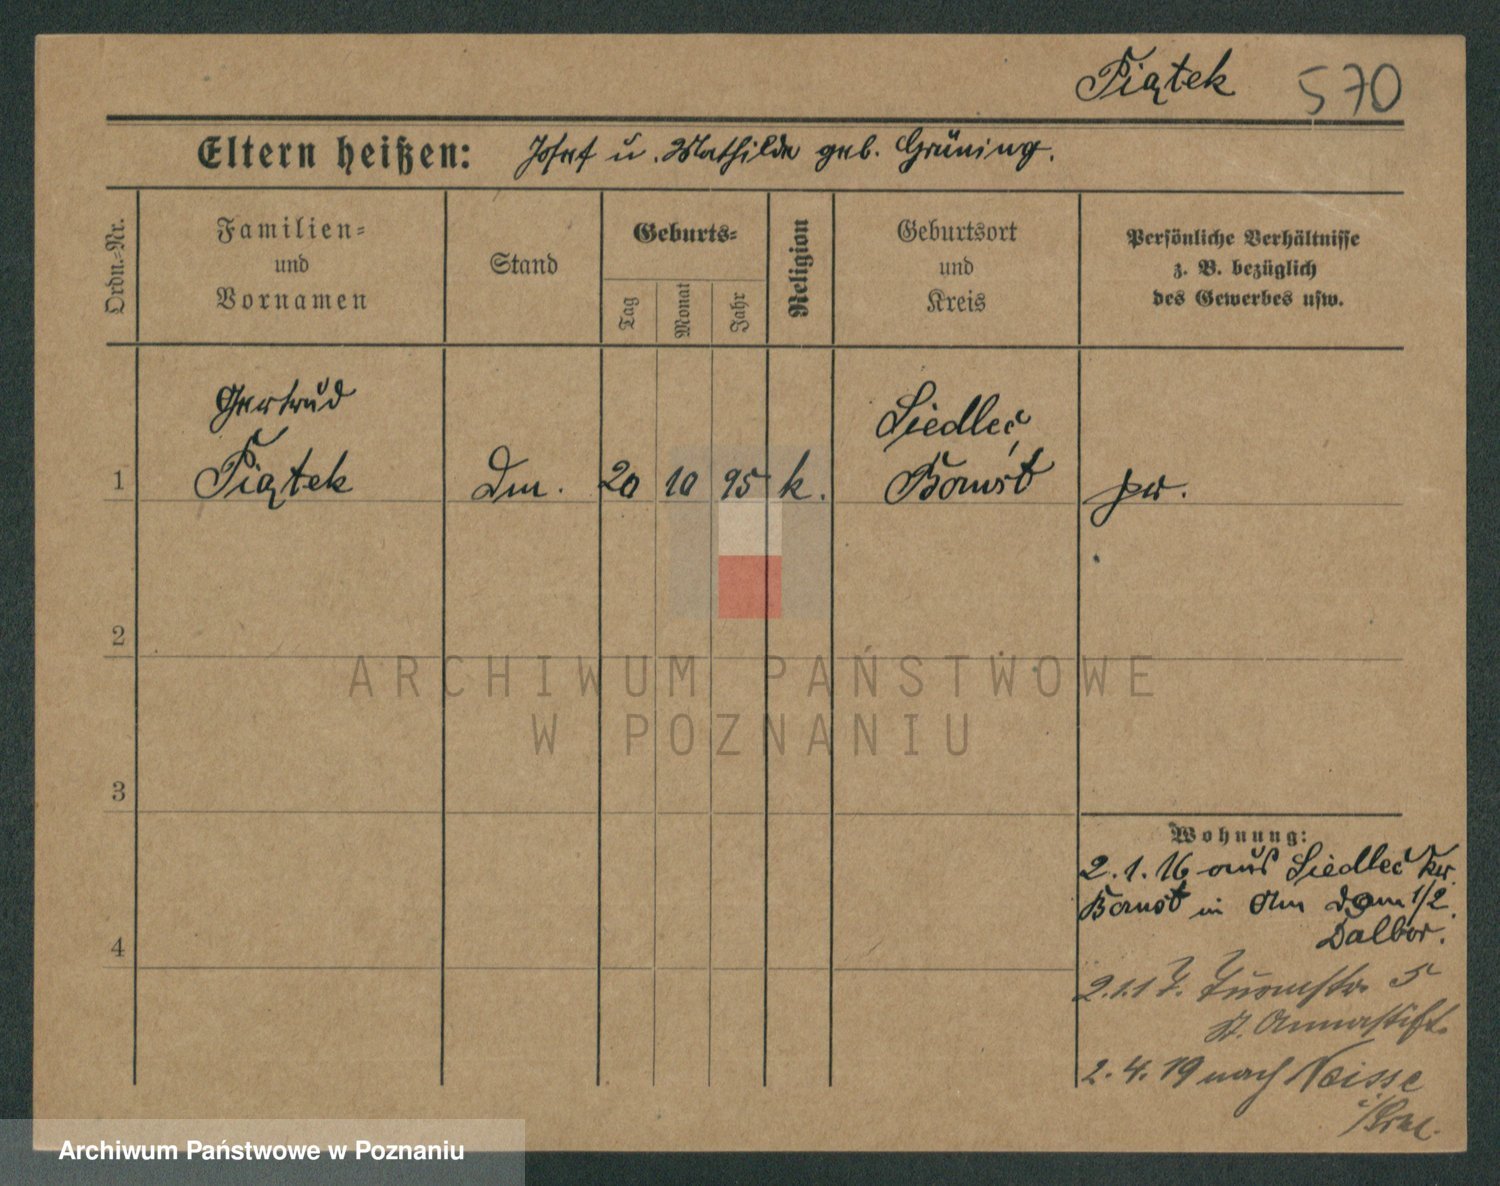 Piątek 570
Eltern heißen: Josef u. Mathilde geb. Grüning.
Ordn.-Nr.
Familien-
und
Vornamen
Stand
Geburts-
Tag
Monat
Jahr
Religion
Geburtsort
und
Kreis
Persönliche Verhältnisse
z. B. bezüglich
des Gewerbes usw.
Gertrud
Siedlec,
1 Piątek Dm. 20 10 95 k. Bomst pr.
2
ARCHIWUM PAŃSTWOWE
W POZNANIU
3
Wohnung:
2.1.16 aus Siedlec Kr.
Bomst in Dom 1/2
4 Dalbor.
2.1.17. Turmstr. 5
St. Annastift.
2.4.19 nach Neisse
Archiwum Państwowe w Poznaniu